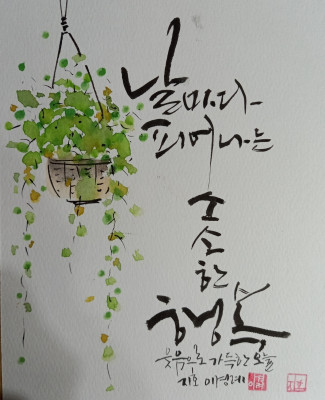 날마다
피어나는
소소한
행복
웃음으로 가득한 오늘